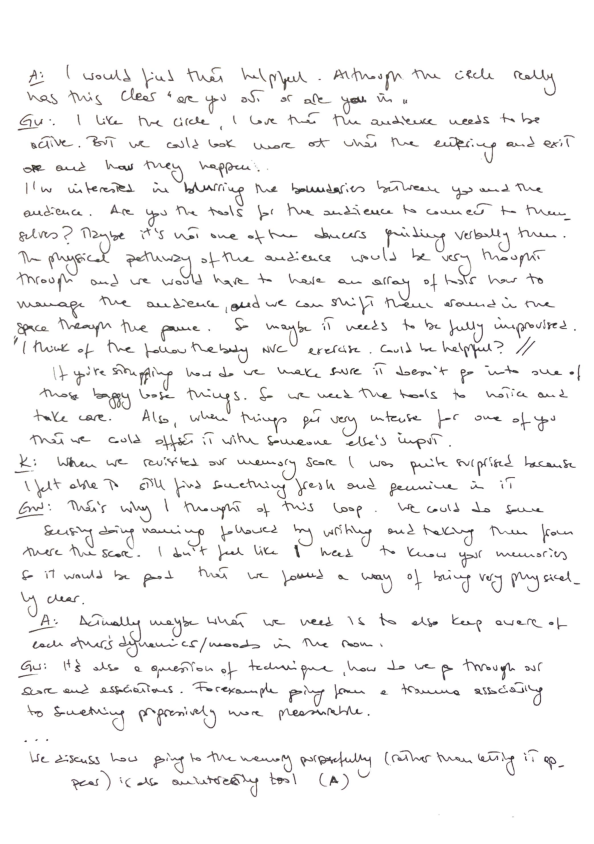 A: I would find that helpful. Although the circle really
has this clear "are you out or are you in"
Gw: I like the circle, I love that the audience needs to be
active. But we could look more at what the entering and exit
are and how they happen.
I'm interested in blurring the boundaries between you and the
audience. Are you the tools for the audience to connect to them_
selves? Maybe it's not one of the dancers guiding verbally them.
The physical pathway of the audience would be very thought
through and we would have to have an array of tools how to
manage the audience, and we can shift them around in the
space through the game. So maybe it needs to be fully improvised.
"I think of the follow the body NVC exercise. Could be helpful? //
If you're struggling how do we make sure it doesn't go into one of
those baggy loose things. So we need the tools to notice and
take care. Also, when things get very intense for one of you
that we could offset it with someone else's input.
K: When we revisited our memory score I was quite surprised because
I felt able to still find something fresh and genuine in it
Gw: That's why I thought of this loop. We could do some
sensing doing naming followed by writing and taking them from
there the score. I don't feel like I need to know your memories
so it would be good that we found a way of being very physical_
ly clear.
A: Actually maybe what we need is to also keep aware of
each other's dynamics/moods in the room.
Gw: It's also a question of technique, how do we go through our
score and associations. For example going from a trauma associating
to something progressively more pleasurable.
...
We discuss how going to the memory purposefully (rather than letting it ap_
pear) is also an interesting tool (A)